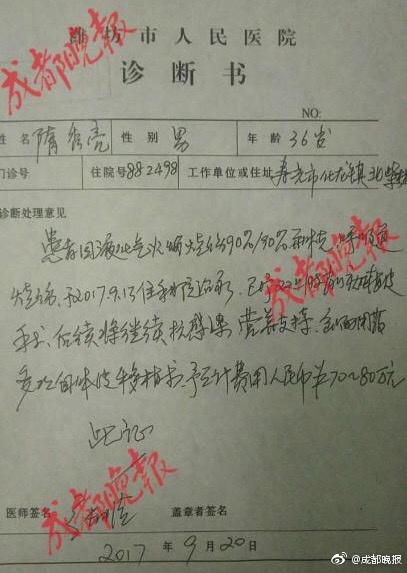 潍坊市人民医院
诊断书
NO:
姓名 隋香亮 性别 男 年龄 36岁
门诊号 住院号 882498 工作单位或住址 寿光市化龙镇北柴村
诊断处理意见
患者因液化气火焰烧伤90%/90%
烧伤 于2017.9.13住我院治疗
手术 后续将继续抗感染 营养支持
自体皮 移植术 预计费用人民币 70~80万元
此证
医师签名 盖章者签名
2017 年 9 月 20 日
成都晚报
成都晚报
成都晚报
成都晚报
@成都晚报